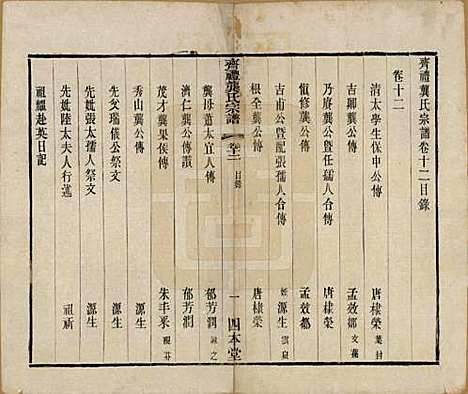 齊禮龔氏宗譜卷十二目錄
卷十二
清太學生保申公傳 唐棣榮
吉卿龔公傳 孟效鄒
乃賡龔公暨任孺人合傳 唐棣榮
恆修龔公傳 孟效鄒
吉甫公暨配張孺人合傳 源生
根全龔公傳 唐棣榮
齊禮龔氏宗譜 卷十二 目錄 一 四本堂
龔母蕭太宜人傳 郁芳潤 詠之
濟仁龔公傳讚 郁芳潤
茂才龔果侯傳 朱丰采
秀山龔公傳 源生
先父瑞儀公祭文 源生
先妣張太孺人祭文 源生
先妣陸太夫人行述 祖新
祖繩赴英日記